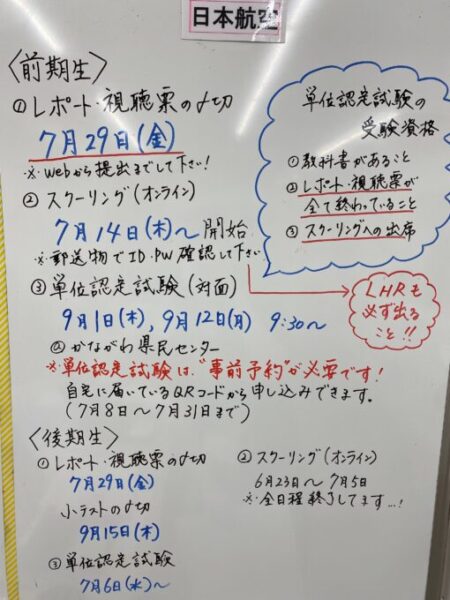 日本航空
〈前期生〉
① レポート・視聴票の〆切
7月29日(金)
※ webから提出までして下さい!
② スクーリング(オンライン)
7月14日(木)〜 開始
※ 郵送物でID・PW確認して下さい
③ 単位認定試験(対面)
9月1日(木), 9月12日(月) 9:30〜
@ かながわ県民センター
※ 単位認定試験は"事前予約"が必要です!
自宅に届いているQRコードから申し込みできます。
(7月8日〜7月31日まで)
単位認定試験の
受験資格
① 教科書があること
② レポート・視聴票が
全て終わっていること
③ スクーリングへの出席
LHRも
必ず出る
こと!!
〈後期生〉
① レポート・視聴票の〆切
7月29日(金)
小テストの〆切
9月15日(木)
③ 単位認定試験
7月6日(水)〜
② スクーリング(オンライン)
6月23日〜7月5日
※ 全日程終了してます...!